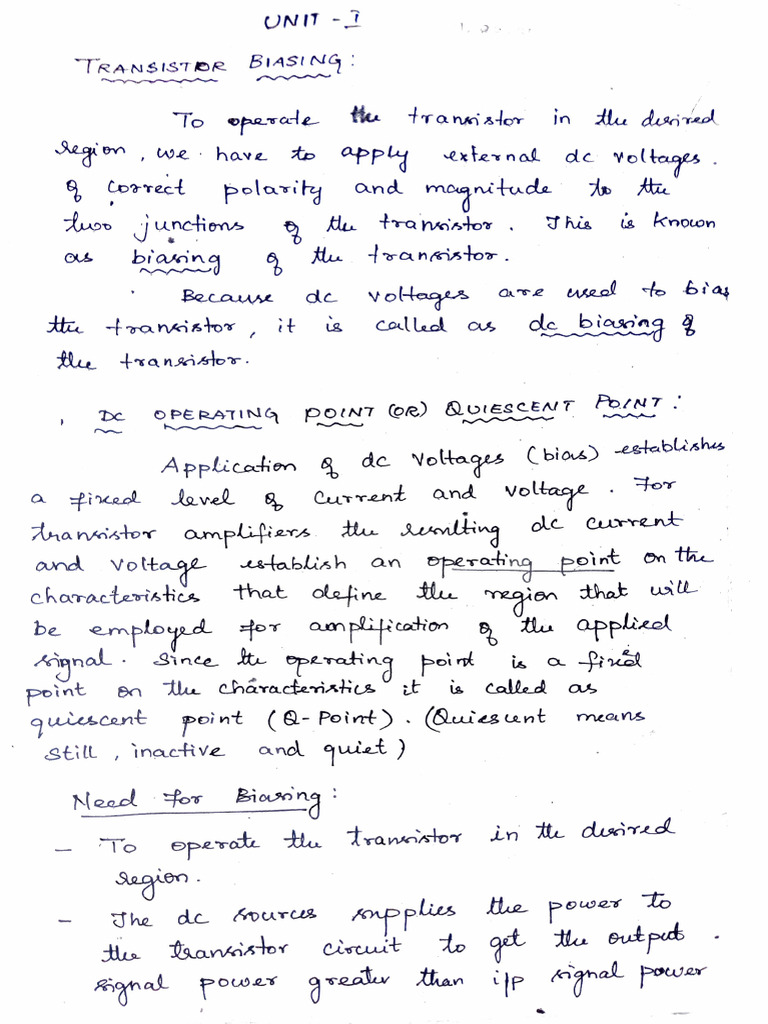 UNIT - I
TRANSISTOR BIASING :
To operate the transistor in the desired
region, we have to apply external dc voltages.
of correct polarity and magnitude to the
two junctions of the transistor. This is known
as biasing of the transistor.
Because dc voltages are used to bias
the transistor, it is called as dc biasing of
the transistor.
DC OPERATING POINT (OR) QUIESCENT POINT :
Application of dc voltages (bias) establishes
a fixed level of current and voltage. For
transistor amplifiers the resulting dc current
and voltage establish an operating point on the
characteristics that define the region that will
be employed for amplification of the applied
signal. Since the operating point is a fixed
point on the characteristics it is called as
quiescent point (Q-Point). (Quiescent means
still, inactive and quiet)
Need for Biasing :
- To operate the transistor in the desired
region.
- The dc sources supplies the power to
the transistor circuit to get the output
signal power greater than i/p signal power